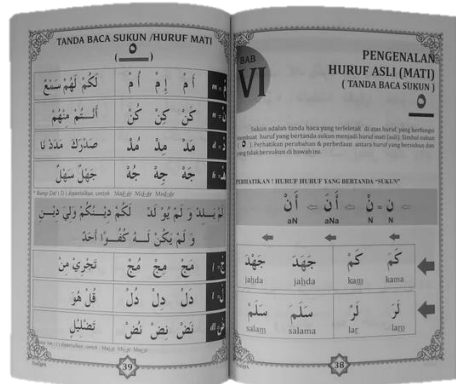 TANDA BACA SUKUN /HURUF MATI
لَكُمْ لَهُمْ سَمْعٌ أَمْ إِمْ أُمْ
اَنْـتُمْ مِنْهُمْ كَنْ كِنْ كُنْ
مَدْ مِدْ مُدْ
جَهْلٌ سَهْلٌ جَهْ جِهْ جُهْ
لَمْ يَـلِدْ وَ لَمْ يُوْ لَدْ لَكُمْ دِيْـنُكُمْ وَلِيَ دِيْـنِ
وَ لَمْ يَكُنْ لَـهُ كُفُـوًا أَحَدٌ
تَجْرِيْ مِنْ مَجْ مِجْ مُجْ
قُلْ هُوَ دَلْ دِلْ دُلْ
تَضْلِيْلٍ نَضْ نِضْ نُضْ
39
BAB
VI
PENGENALAN
HURUF ASLI (MATI)
( TANDA BACA SUKUN )
Sukun adalah tanda baca yang terletak di atas huruf yang berfungsi
menjadi huruf mati (asli). Simbol sukun
Perhatikan perubahan & perbedaan antara huruf yang bersukun dan
yang tidak bersukun di bawah ini.
PERHATIKAN ! HURUF HURUF YANG BERTANDA "SUKUN"
أَنْ ⇐ أَنَ ⇐ نْ = نْ
aN aNa N N
جَهْدَ جَهَدَ كَمْ كَمَ
jahda jahda kam kama
سَلَمْ سَلَمَ لَرْ لَرَ
salam salama lar lara
38